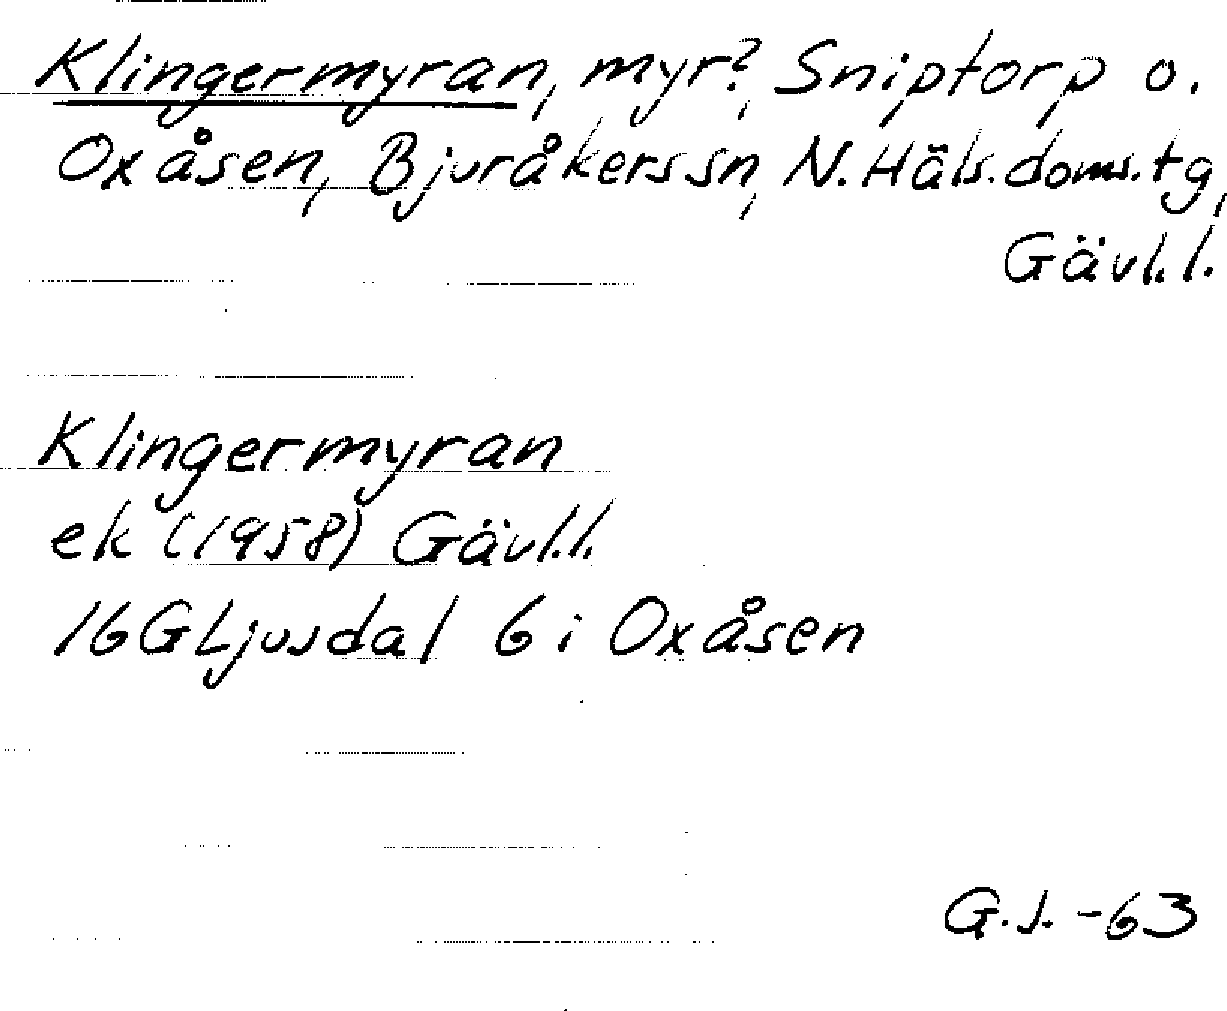 Klingermyran, myr?, Sniptorp o.
Oxåsen, Bjuråkers sn, N. Häls. doms. tg,
Gävl. l.
Klingermyran
ek (1958) Gävl. l.
16G Ljusdal 6 i Oxåsen
G. J. -63